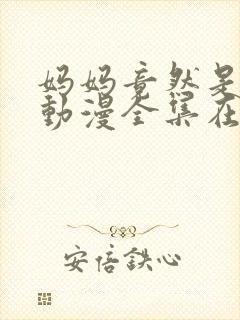 妈妈竟然是
動漫全集在
安倍鉄心